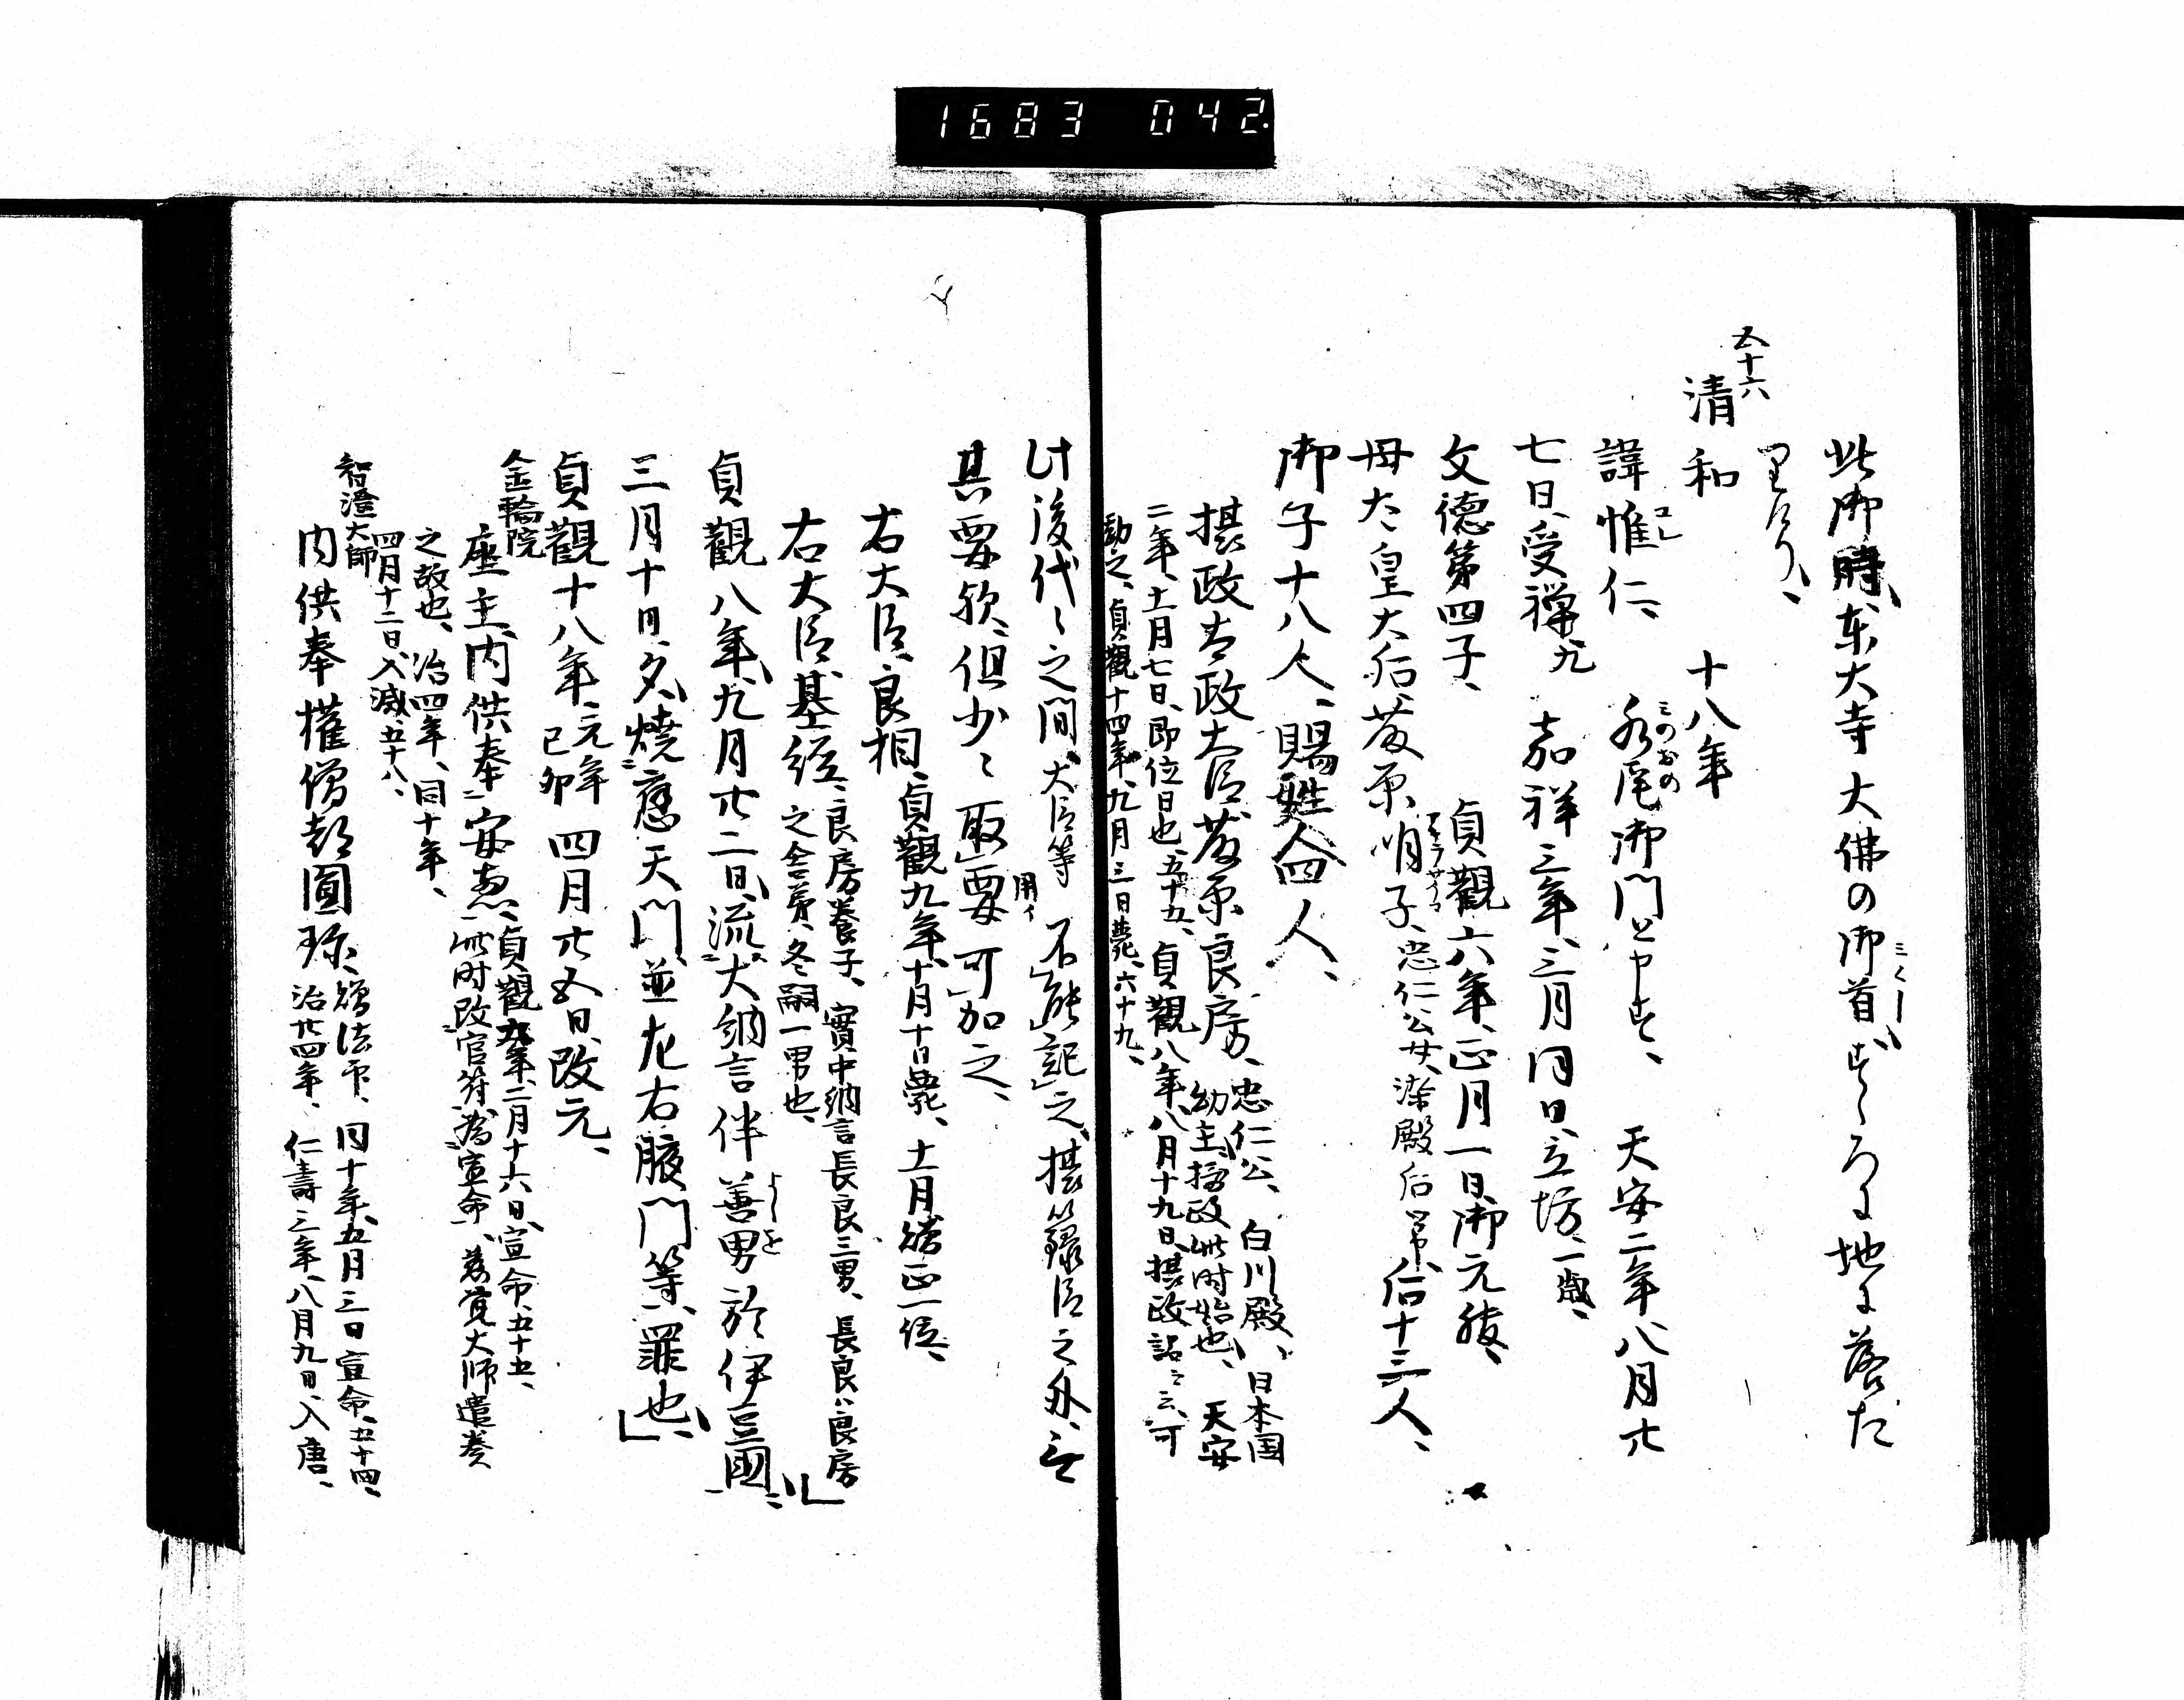 1683 042.
此御時、東大寺大佛の御首、すゝろに地に落た
みくし
りけり、
五十六
清和 十八年
諱惟仁、 水尾御門と申す、 天安二年八月廿
コレ
みのおの
七日、受禅、九 嘉祥三年、三月同日、立坊、一歳、
文德第四子、 貞觀六年、正月一日、御元服、
母太皇大后藤原明子、忠仁公女、染殿后 常后十三人、
アキラケイコ
御子十八人、賜姓四人、
摂政太政大臣藤原良房、忠仁公、 白川殿、 日本国
幼主摂政此时始也、 天安
二年、十一月七日、即位日也、五十五、貞觀八年、八月十九日、摂政詔云云、可
勤之、貞觀十四年、九月三日薨、六十九、
此後代々之間、大臣等不能記之、摂籙臣之外、無
用イ
其要歟、但少々取要可加之、
右大臣良相、貞觀九年、十月十日薨、十一月贈正一位、
右大臣基経、良房養子、實中納言長良三男、長良ハ良房
之舎弟、冬嗣一男也、
貞觀八年、九月廿二日、流大納言伴善男於伊豆國、
よしを
三月十日、夕、燒應天門、並左右腋門等、罪也、
貞觀十八年、元年己卯 四月廿五日、改元、
金輪院
座主内供奉安惠、貞觀九年二月十六日、宣命、五十五、
此时改官符、為宣命、慈覚大师遺奏
之故也、治四年、同十年、
四月十二日、入滅、五十八、
智澄大師
内供奉権僧都圓珍、贈法印、同十年、五月三日宣命、五十四、
治廿四年、仁壽三年、八月九日、入唐、